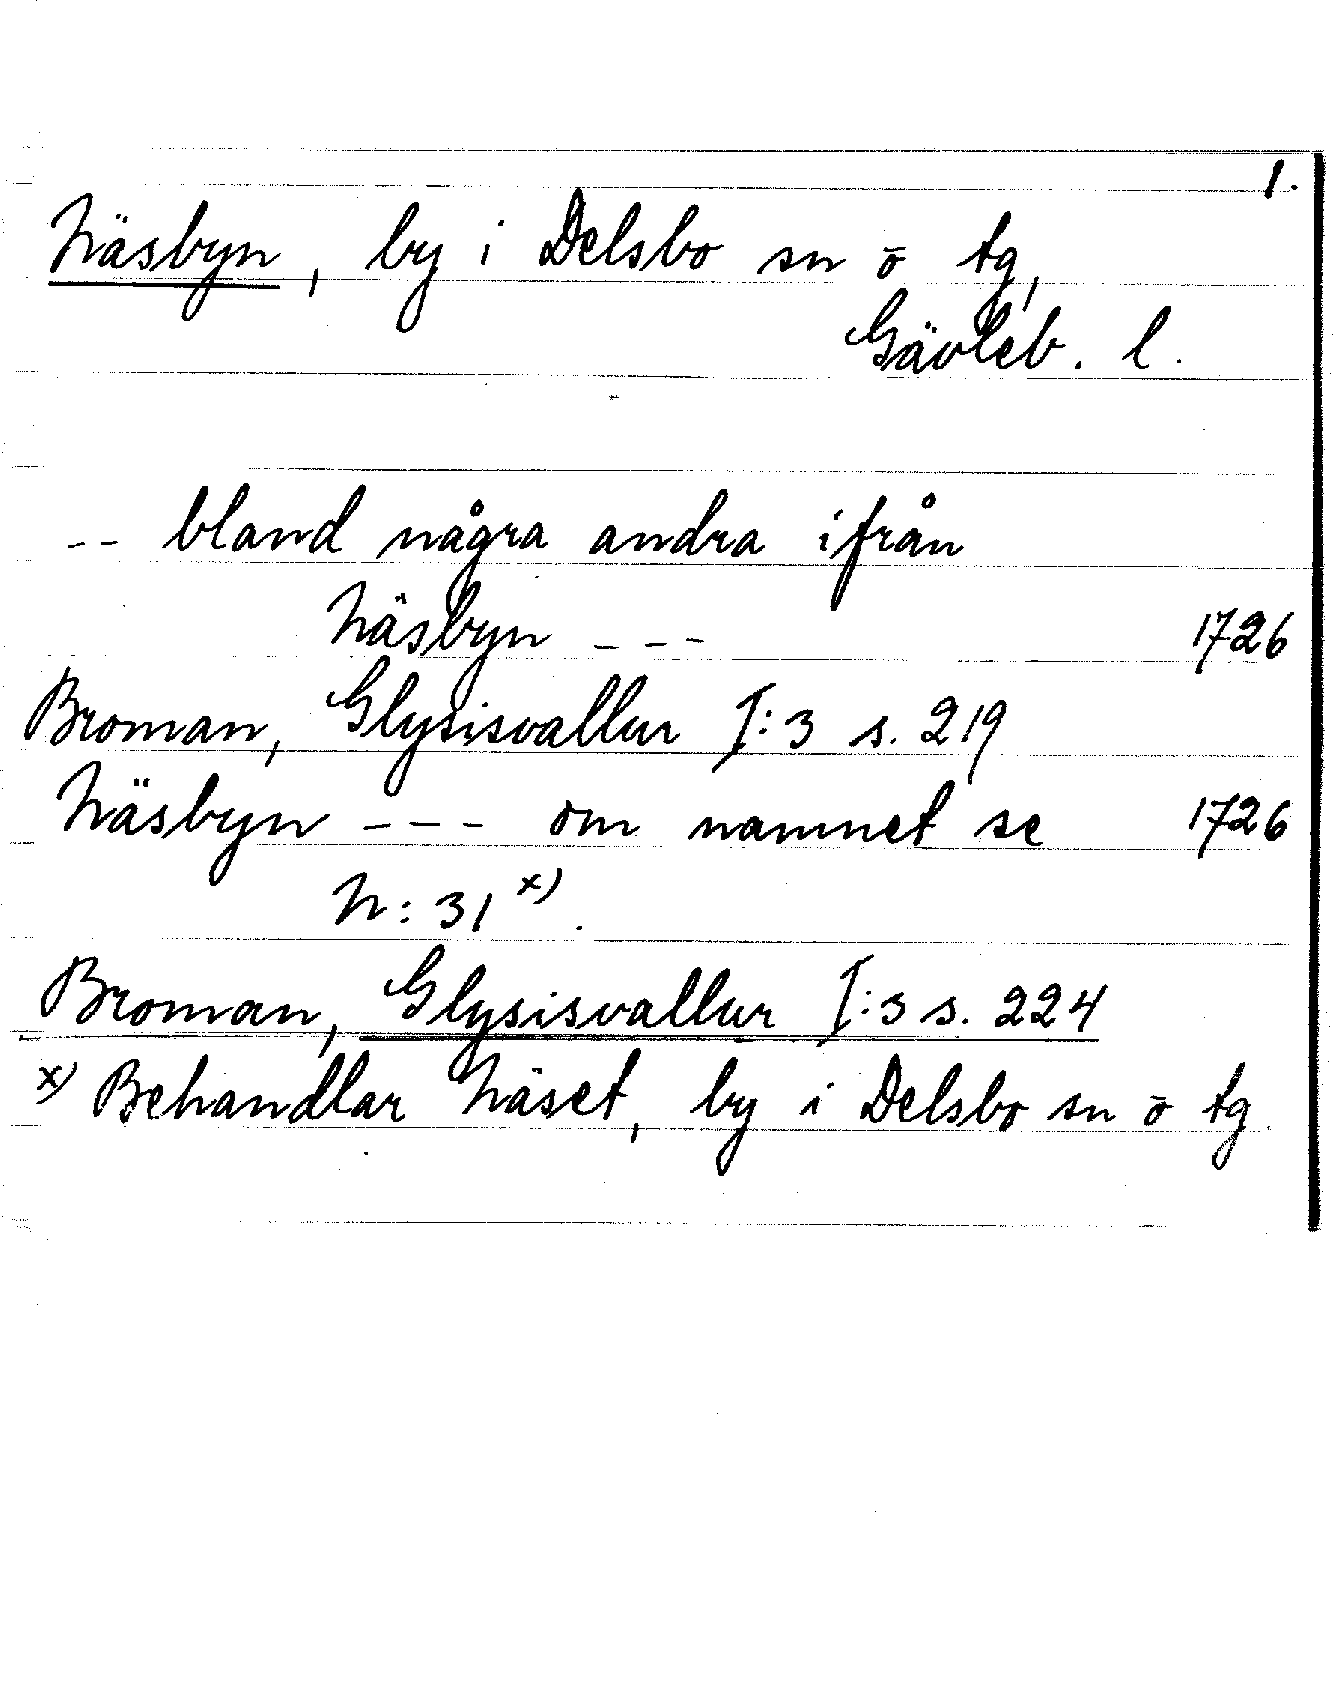 1.
Näsbyn, by i Delsbo sn o tg,
Gävleb. l.
-- bland några andra ifrån
Näsbyn --- 1726
Broman, Glysisvallur I:3 s. 219
Näsbyn --- om namnet se 1726
N: 31 x).
Broman, Glysisvallur I:3 s. 224
x) Behandlar Näset, by i Delsbo sn o tg.